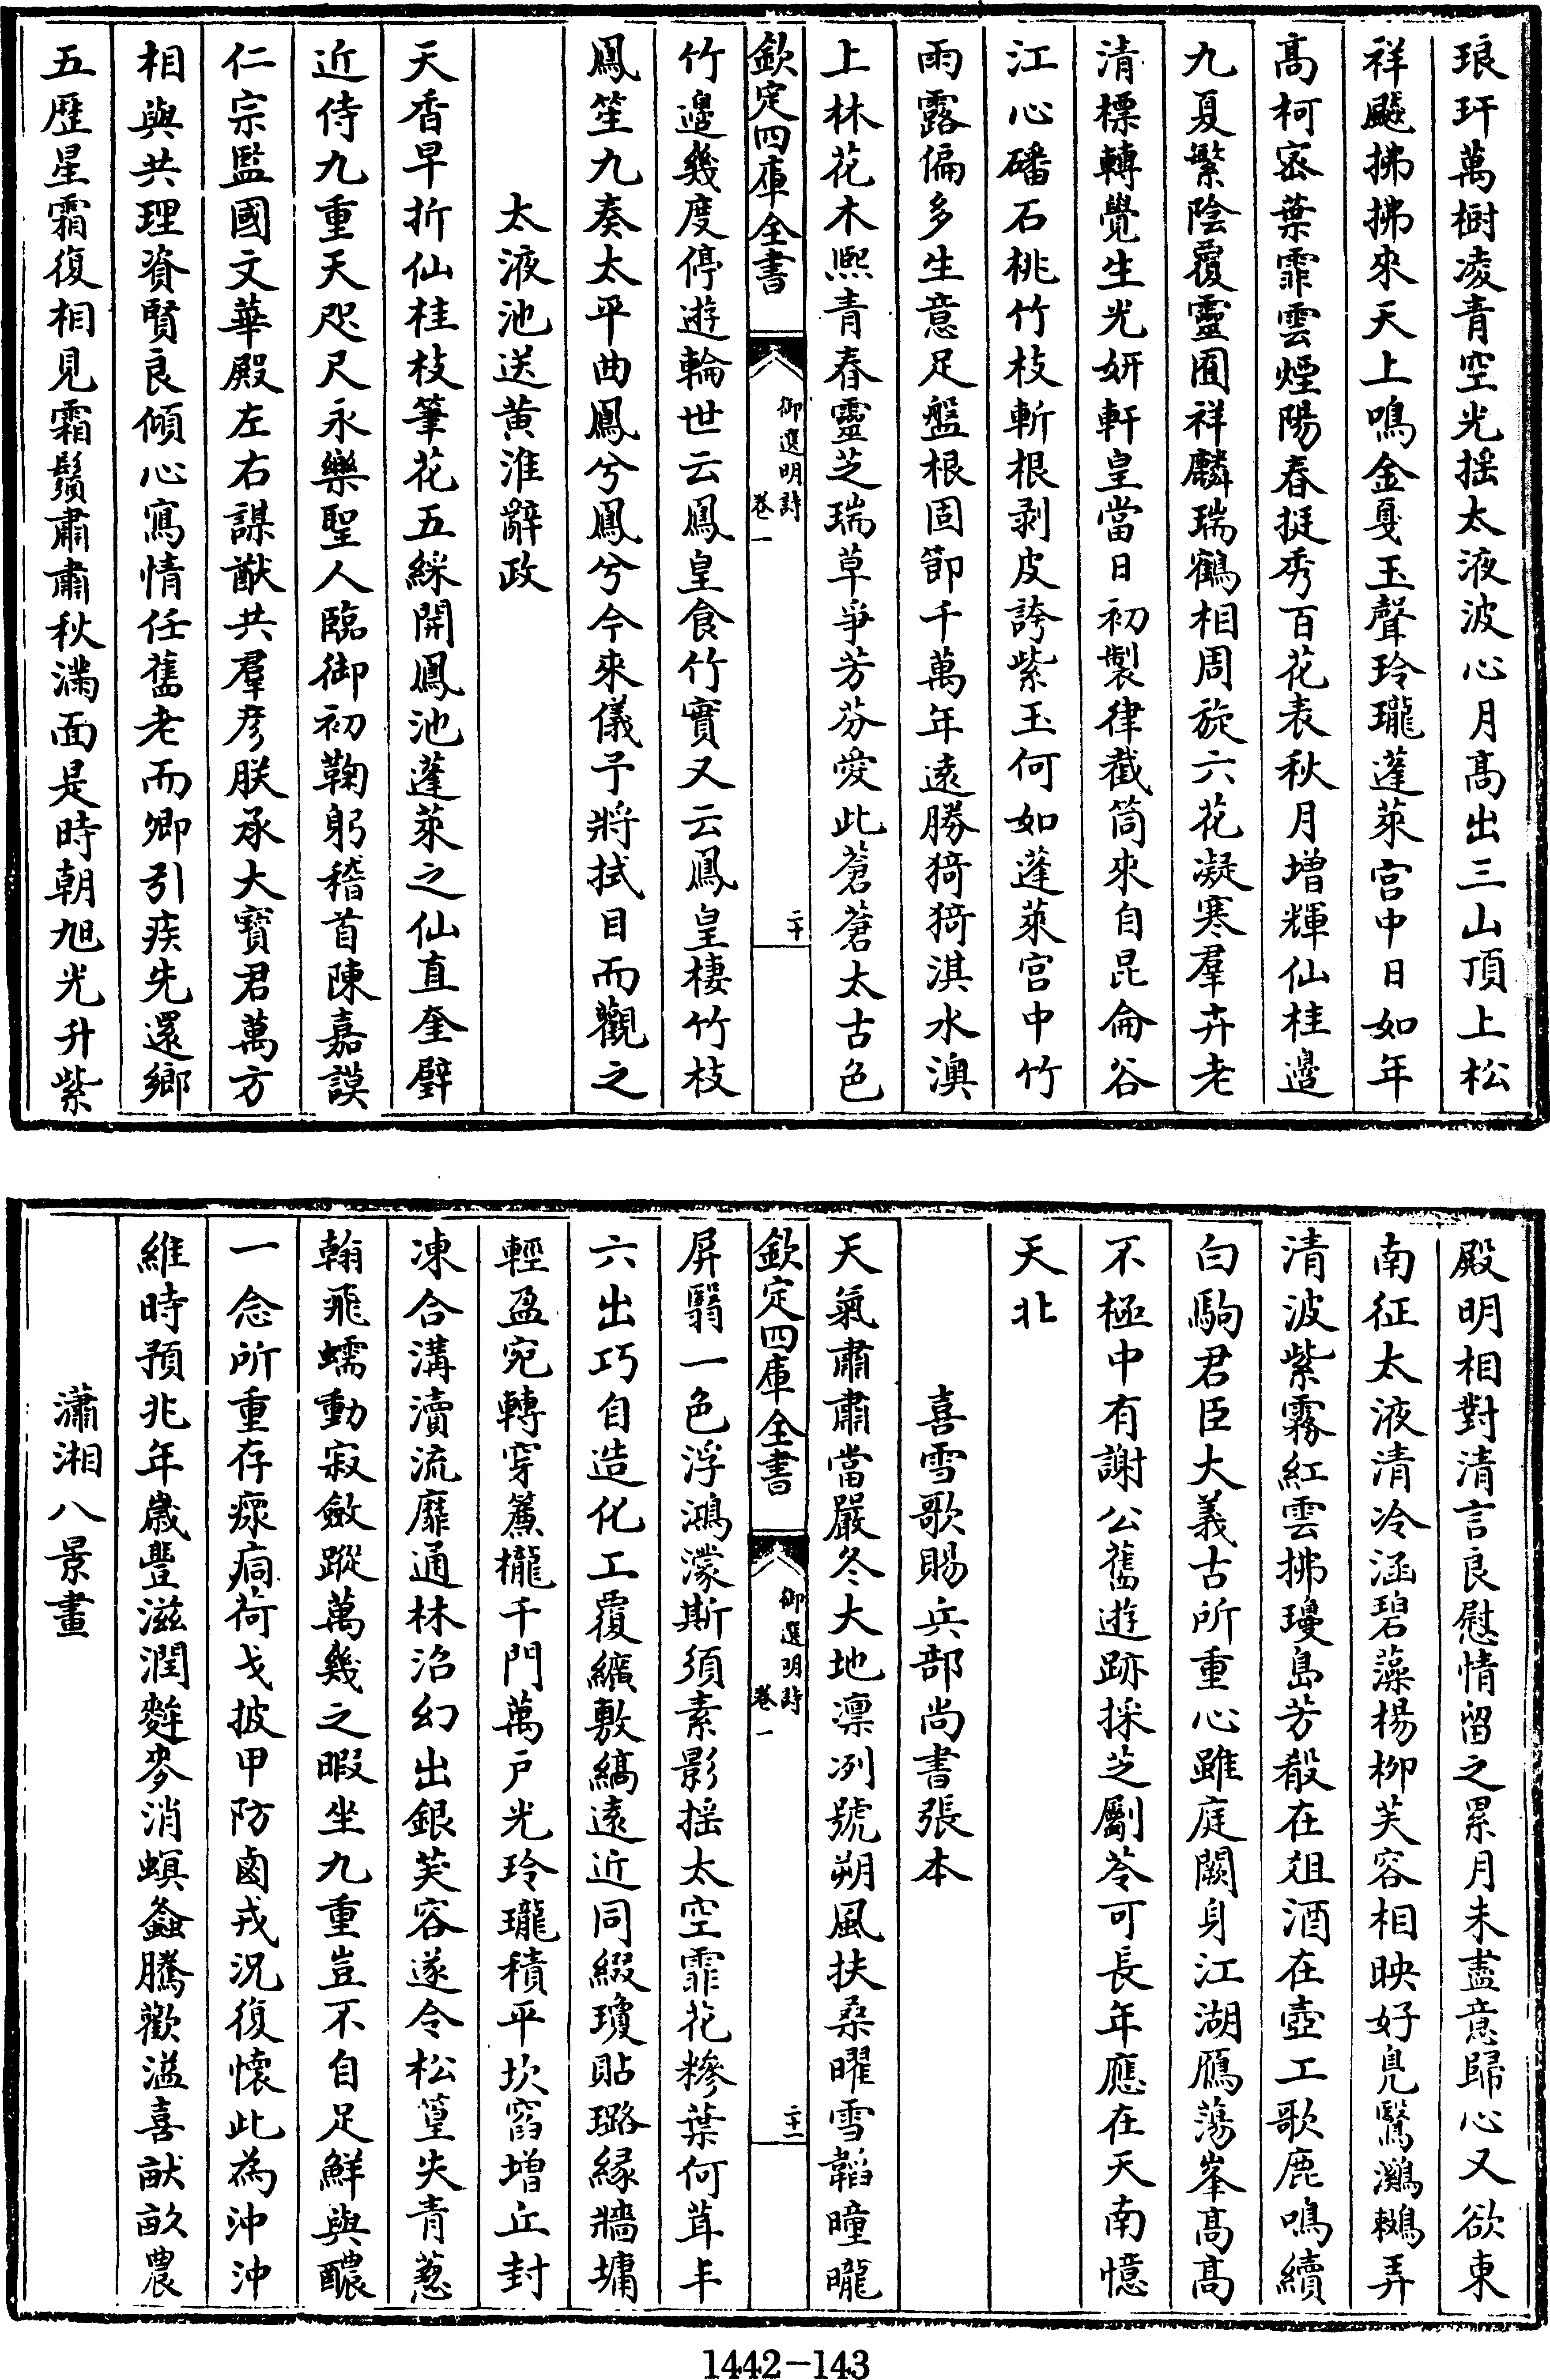 琅玕萬樹凌青空光揺太液波心月髙出三山頂上松
祥飈拂拂來天上鳴金戛玉聲玲瓏蓬萊宫中日如年
髙柯宻葉霏雲煙陽春挺秀百花表秋月増輝仙桂邉
九夏繁陰覆靈囿祥麟瑞鶴相周旋六花凝寒羣卉老
清標轉覺生光妍軒皇當日初製律截筒來自昆侖谷
江心磻石桃竹枝斬根剥皮誇紫玉何如蓬萊宫中竹
雨露偏多生意足盤根固節千萬年逺勝猗猗淇水澳
上林花木熙青春靈芝瑞草爭芳芬愛此蒼蒼太古色
欽定四庫全書
御選明詩
卷一
二十
竹邉幾度停遊輪世云鳳皇食竹實又云鳳皇棲竹枝
鳳笙九奏太平曲鳳兮鳳兮今來儀予將拭目而觀之
太液池送黄淮辭政
天香早折仙桂枝筆花五綵開鳳池蓬萊之仙直奎壁
近侍九重天咫尺永樂聖人臨御初鞠躬稽首陳嘉謨
仁宗監國文華殿左右謀猷共羣彦朕承大寳君萬方
相與共理資賢良傾心寫情任舊老而卿引疾先還鄉
五歴星霜復相見霜鬚肅肅秋滿面是時朝旭光升紫
殿明相對清言良慰情留之累月未盡意歸心又欲東
南征太液清泠涵碧藻楊柳芙容相映好鳬鷖鸂鶒弄
清波紫霧紅雲拂瓊島芳殽在爼酒在壺工歌鹿鳴續
白駒君臣大義古所重心雖庭闕身江湖鴈蕩峯髙髙
不極中有謝公舊遊跡採芝劚苓可長年應在天南憶
天北
喜雪歌賜兵部尚書張本
天氣肅肅當嚴冬大地凛冽號朔風扶桑曜雪韜曈曨
欽定四庫全書
御選明詩
卷一
二十一
屏翳一色浮鴻濛斯須素影揺太空霏花糝葉何茸丰
六出巧自造化工覆纊敷縞逺近同綴瓊貼璐縁牆墉
輕盈宛轉穿簾櫳千門萬户光玲瓏積平坎窞增丘封
凍合溝瀆流靡通林沿幻出銀芙容遂令松篁失青葱
翰飛蠕動寂斂蹤萬幾之暇坐九重豈不自足鮮與醲
一念所重存瘝痌荷戈披甲防鹵戎況復懐此為沖沖
維時預兆年歲豐滋潤麰麥消螟螽騰歡溢喜畎畝農
瀟湘八景畫
1442-143